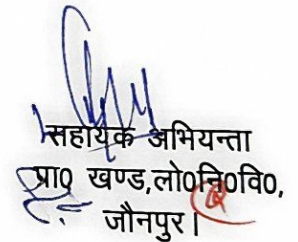 सहायक अभियन्ता
प्रा0 खण्ड,लो0नि0वि0,
जौनपुर।